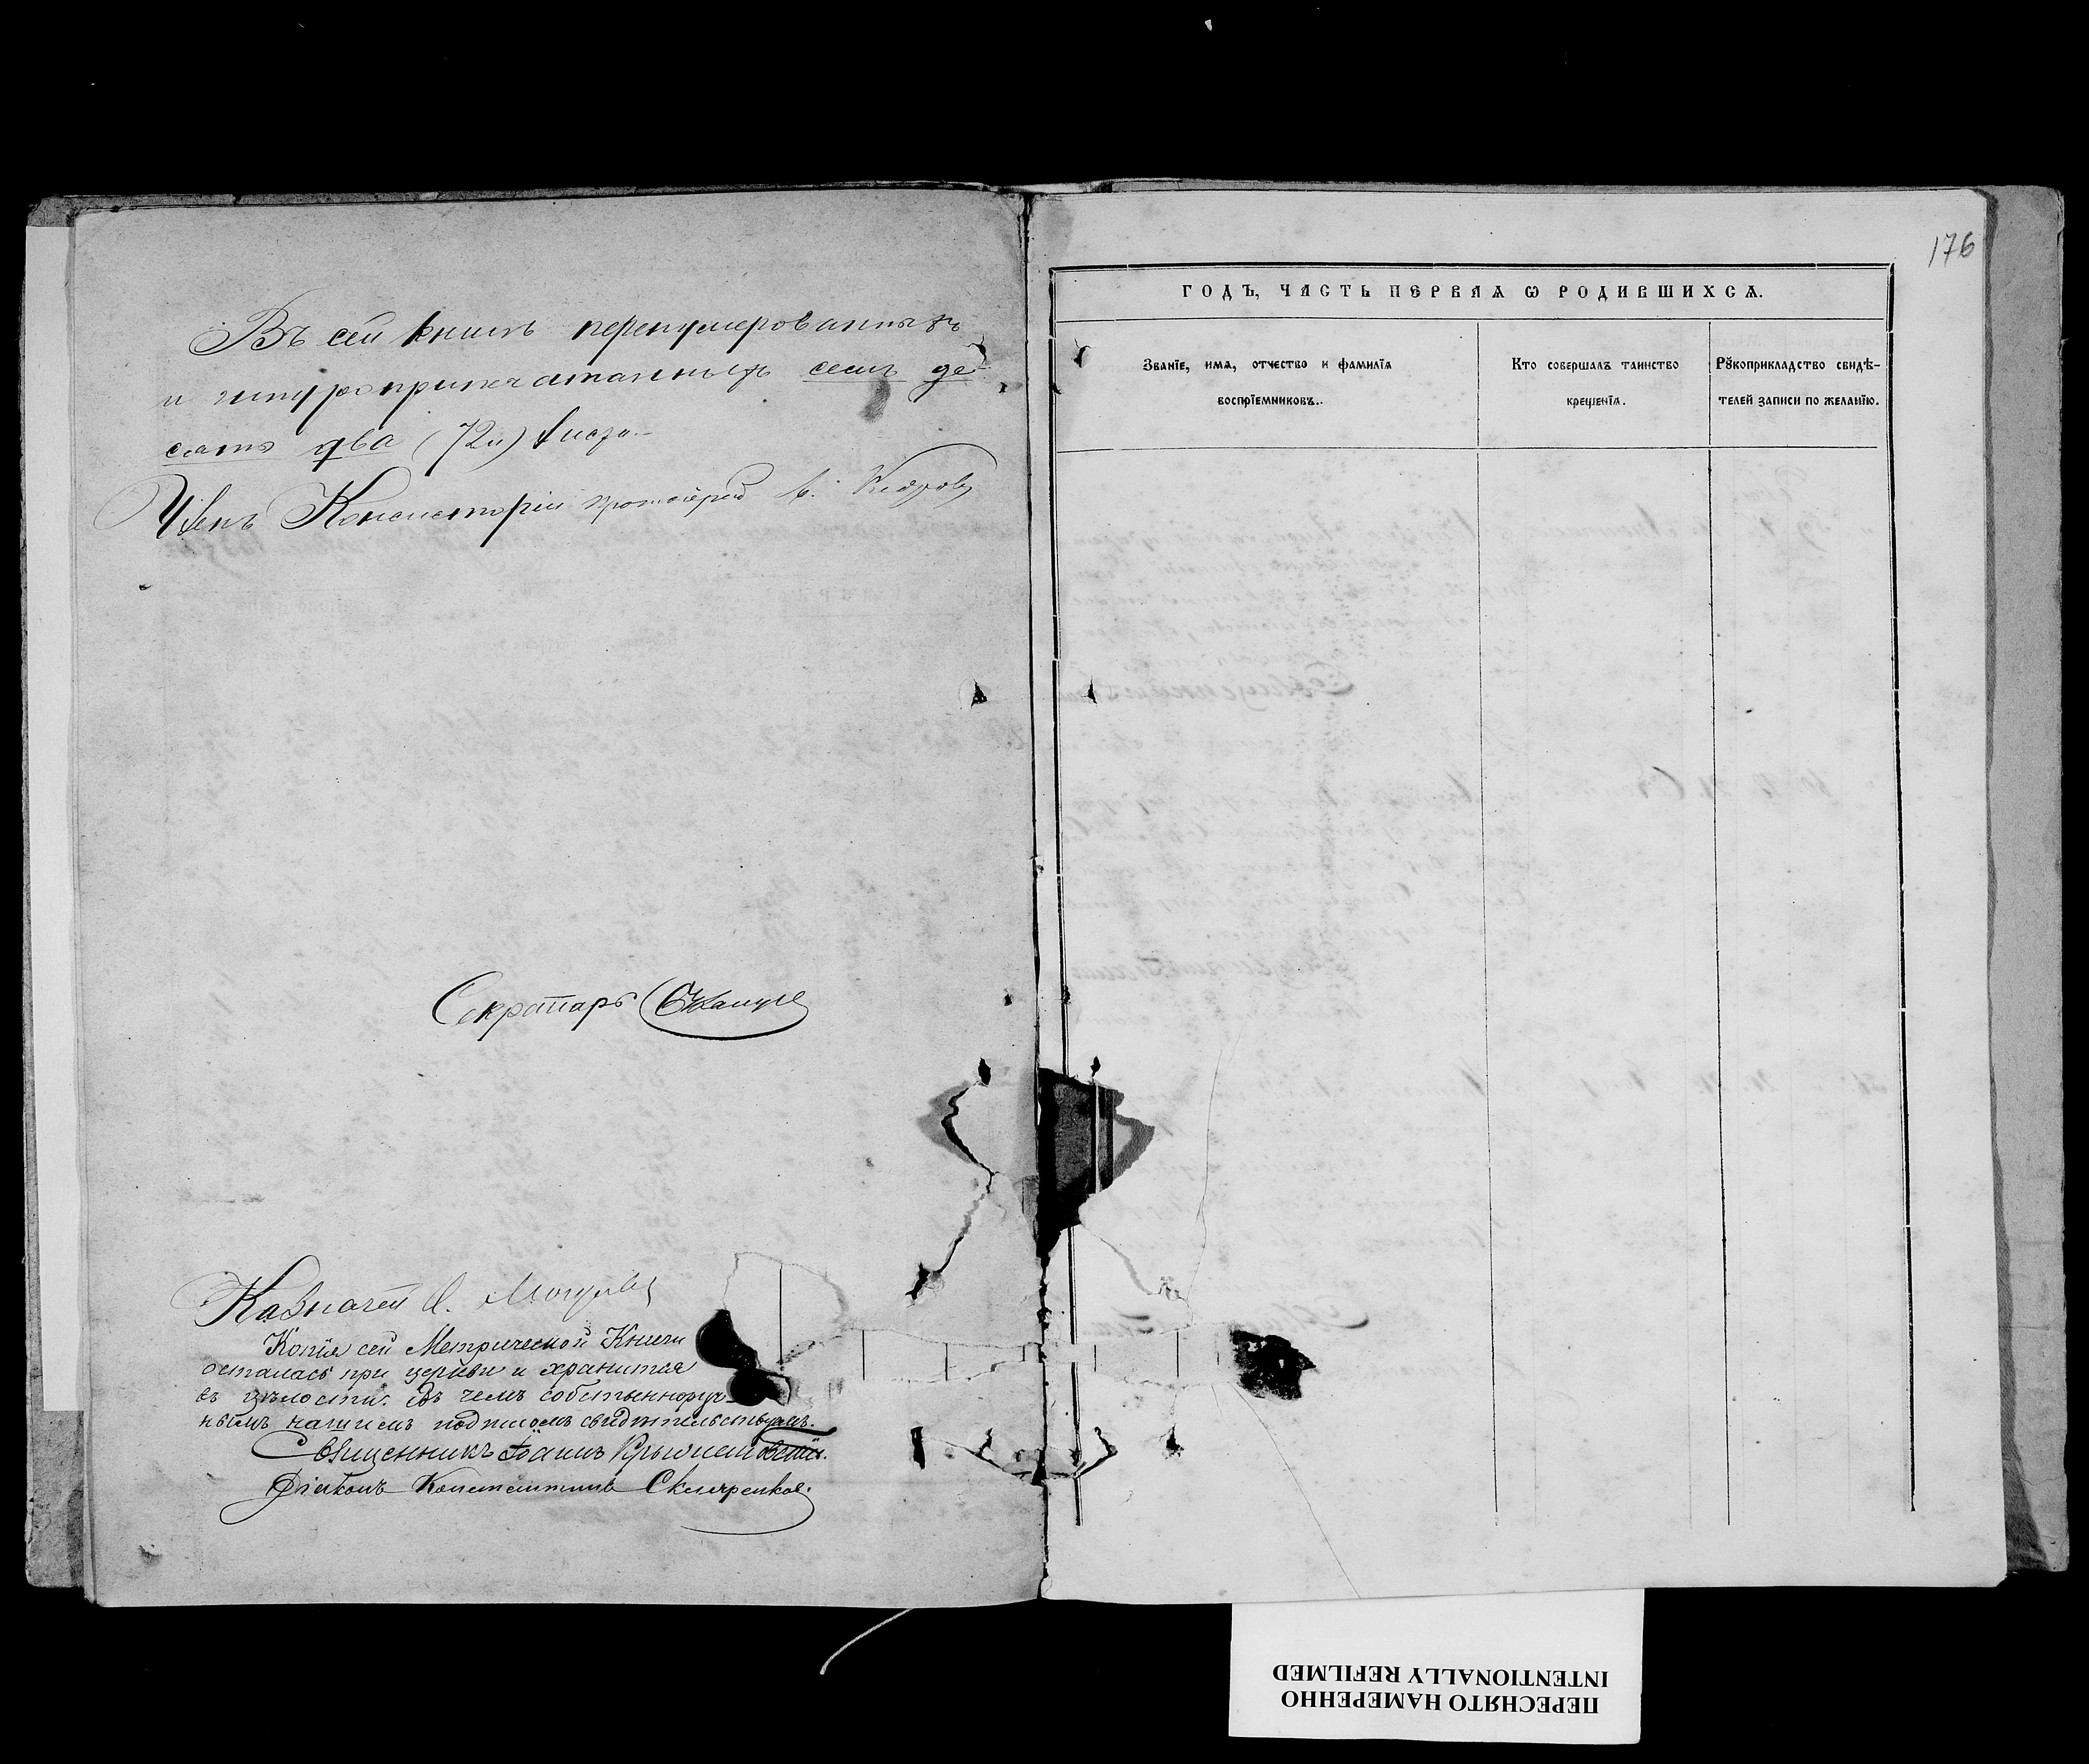 Въ сей книгѣ перенумерованныхъ
и шнуроприпечатанныхъ семь де-
сятъ два (72и) листа.
Членъ Консисторіи протоіерей
Секретарь
Казначей
Копія сей Метрической Книги
осталась при церкви и хранится
въ цѣлости. Въ чемъ собственноруч-
нымъ нашимъ подписомъ свидѣтельствуемъ.
Священникъ Іоаннъ
Діаконъ Константинъ
176
ГОДЪ, ЧАСТЬ ПЕРВАЯ Ѡ РОДИВШИХСѦ.
Званїе, имѧ, отчество и фамилїѧ
воспрїемниковъ..
Кто совершалъ таинство
крещенїѧ.
Рꙋкоприкладство свидѣ-
телей записи по желанїю.
ПЕРЕСНЯТО НАМЕРЕННО
INTENTIONALLY REFILMED